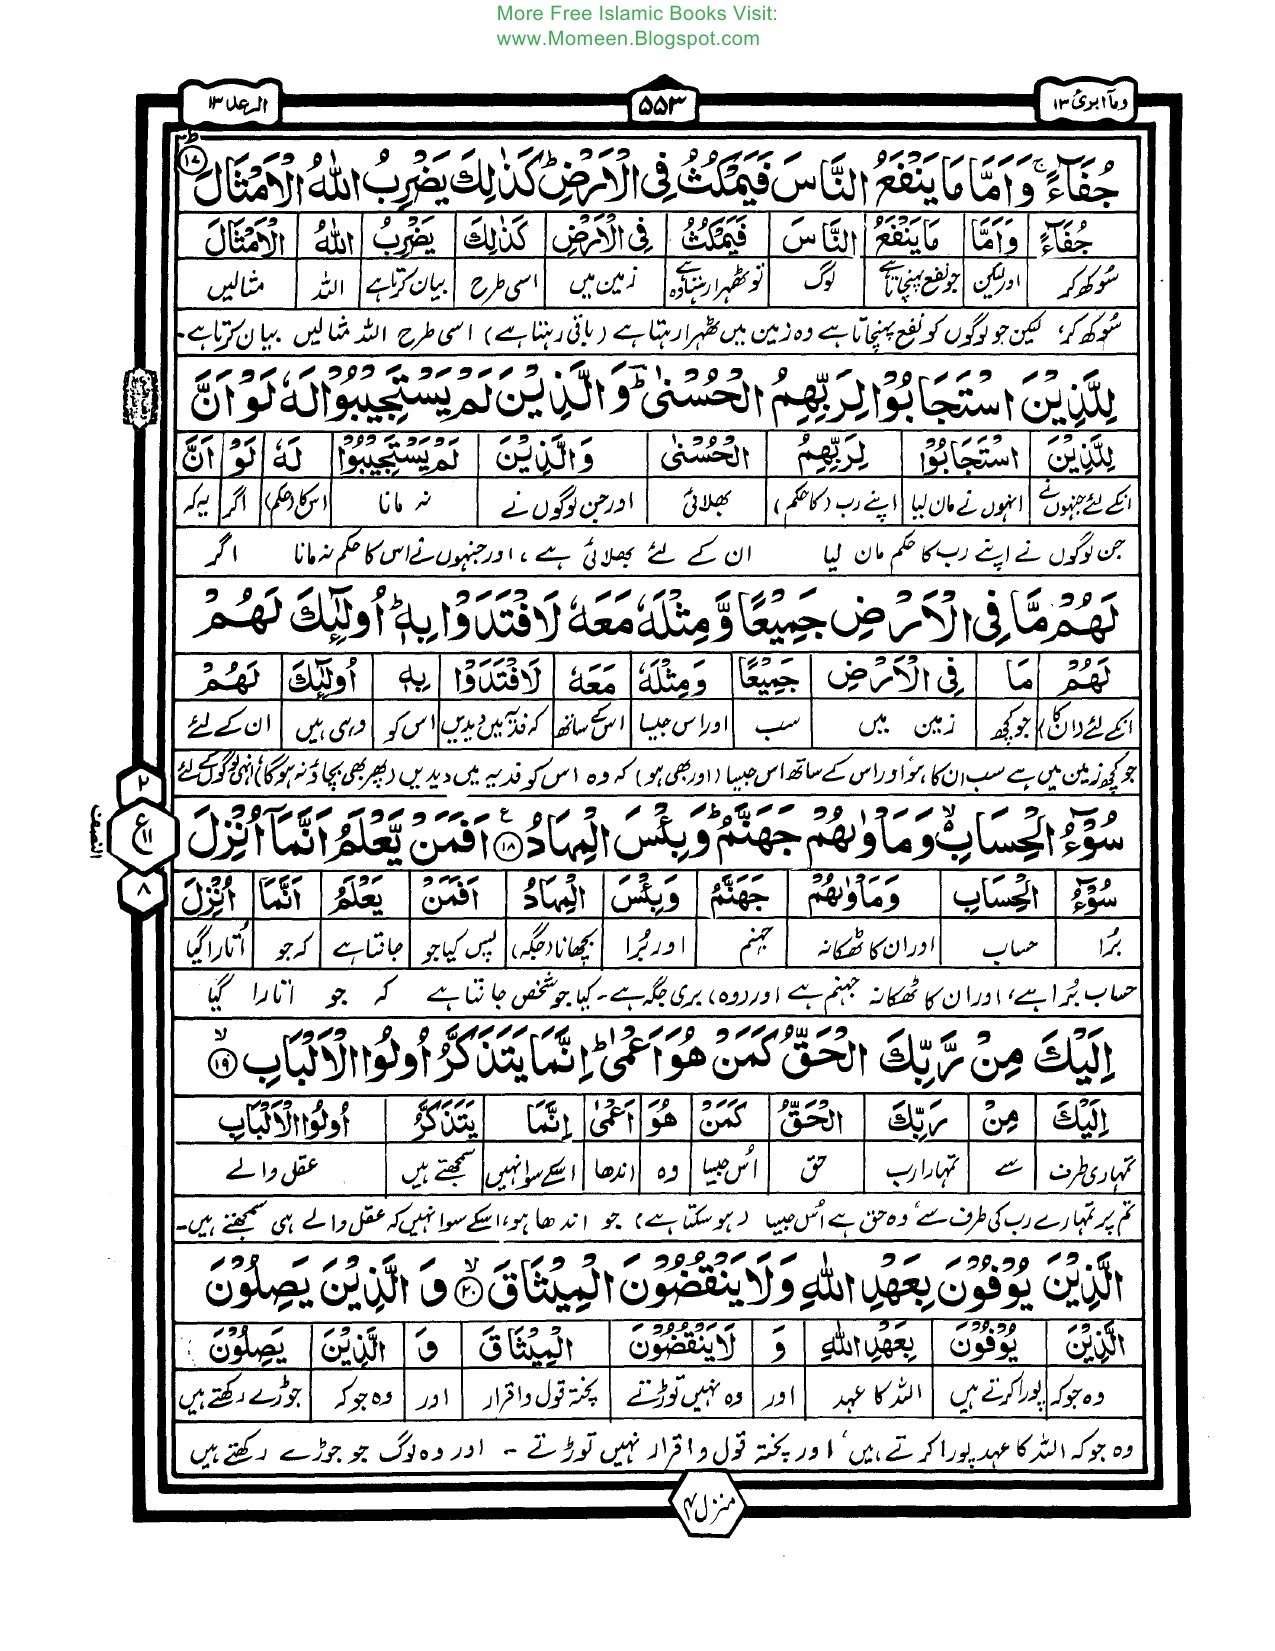 More Free Islamic Books Visit:
www.Momeen.Blogspot.com
وماۤ ابرئ ۱۳ ۵۵۳ الرعد ۱۳
جُفَآءً ۚ وَاَمَّا مَا يَنْفَعُ النَّاسَ فَيَمْكُثُ فِى الْاَرْضِ ؕ كَذٰلِكَ يَضْرِبُ اللّٰهُ الْاَمْثَالَ ۱۷
جُفَآءً وَاَمَّا مَا يَنْفَعُ النَّاسَ فَيَمْكُثُ فِى الْاَرْضِ كَذٰلِكَ يَضْرِبُ اللّٰهُ الْاَمْثَالَ
سُوکھ کر اور لیکن جو نفع پہنچاتا ہے لوگ تو ٹھہرا رہتا ہے وہ زمین میں اسی طرح بیان کرتا ہے اللہ مثالیں
سُوکھ کر، لیکن جو لوگوں کو نفع پہنچاتا ہے وہ زمین میں ٹھہرا رہتا ہے (باقی رہتا ہے) اسی طرح اللہ مثالیں بیان کرتا ہے۔
لِلَّذِيْنَ اسْتَجَابُوْا لِرَبِّهِمُ الْحُسْنٰى ؔؕ وَالَّذِيْنَ لَمْ يَسْتَجِيْبُوْا لَهٗ لَوْ اَنَّ
لِلَّذِيْنَ اسْتَجَابُوْا لِرَبِّهِمُ الْحُسْنٰى وَالَّذِيْنَ لَمْ يَسْتَجِيْبُوْا لَهٗ لَوْ اَنَّ
انکے لئے جنہوں نے انہوں نے مان لیا اپنے رب (کا حکم) بھلائی اور جن لوگوں نے نہ مانا اس کا (حکم) اگر یہ کہ
جن لوگوں نے اپنے رب کا حکم مان لیا ان کے لئے بھلائی ہے، اور جنہوں نے اس کا حکم نہ مانا اگر
لَهُمْ مَّا فِى الْاَرْضِ جَمِيْعًا وَّمِثْلَهٗ مَعَهٗ لَافْتَدَوْا بِهٖ ؕ اُولٰٓئِكَ لَهُمْ
لَهُمْ مَا فِى الْاَرْضِ جَمِيْعًا وَمِثْلَهٗ مَعَهٗ لَافْتَدَوْا بِهٖ اُولٰٓئِكَ لَهُمْ
انکے لئے (ان کا) جو کچھ زمین میں سب اور اس جیسا اس کے ساتھ کہ فدیہ میں دیدیں اس کو وہی ہیں ان کے لئے
جو کچھ زمین میں ہے سب ان کا ہو، اور اس کے ساتھ اس جیسا (اور بھی ہو) کہ وہ اس کو فدیہ میں دیدیں (پھر بھی بچاؤ نہ ہوگا) انہی لوگوں کے لئے
سُوْٓءُ الْحِسَابِ ۙ وَمَاْوٰىهُمْ جَهَنَّمُ ؕ وَبِئْسَ الْمِهَادُ ۱۸ اَفَمَنْ يَّعْلَمُ اَنَّمَاۤ اُنْزِلَ
سُوْٓءُ الْحِسَابِ وَمَاْوٰىهُمْ جَهَنَّمُ وَبِئْسَ الْمِهَادُ اَفَمَنْ يَعْلَمُ اَنَّمَا اُنْزِلَ
بُرا حساب اور ان کا ٹھکانہ جہنم اور بُرا بچھانا (جگہ) پس کیا جو جانتا ہے کہ جو اُتارا گیا
حساب بُرا ہے، اور ان کا ٹھکانہ جہنم ہے اور (وہ) بری جگہ ہے۔ کیا جو شخص جانتا ہے کہ جو اتارا گیا
اِلَيْكَ مِنْ رَّبِّكَ الْحَقُّ كَمَنْ هُوَ اَعْمٰى ؕ اِنَّمَا يَتَذَكَّرُ اُولُوا الْاَلْبَابِ ۱۹
اِلَيْكَ مِنْ رَبِّكَ الْحَقُّ كَمَنْ هُوَ اَعْمٰى اِنَّمَا يَتَذَكَّرُ اُولُوا الْاَلْبَابِ
تمہاری طرف سے تمہارا رب حق اُس جیسا وہ اندھا اسکے سوا نہیں سمجھتے ہیں عقل والے
تم پر تمہارے رب کی طرف سے، وہ حق ہے اُس جیسا (ہو سکتا ہے) جو اندھا ہو، اسکے سوا نہیں کہ عقل والے ہی سمجھتے ہیں۔
الَّذِيْنَ يُوْفُوْنَ بِعَهْدِ اللّٰهِ وَلَا يَنْقُضُوْنَ الْمِيْثَاقَ ۲۰ وَ الَّذِيْنَ يَصِلُوْنَ
الَّذِيْنَ يُوْفُوْنَ بِعَهْدِ اللّٰهِ وَ لَا يَنْقُضُوْنَ الْمِيْثَاقَ وَ الَّذِيْنَ يَصِلُوْنَ
وہ جو کہ پورا کرتے ہیں اللہ کا عہد اور وہ نہیں توڑتے پختہ قول و اقرار اور وہ جو کہ جوڑے رکھتے ہیں
وہ جو کہ اللہ کا عہد پورا کرتے ہیں، اور پختہ قول و اقرار نہیں توڑتے ۔ اور وہ لوگ جو جوڑے رکھتے ہیں
۲
ع ۱۱
۸
النصف
منزل ۳